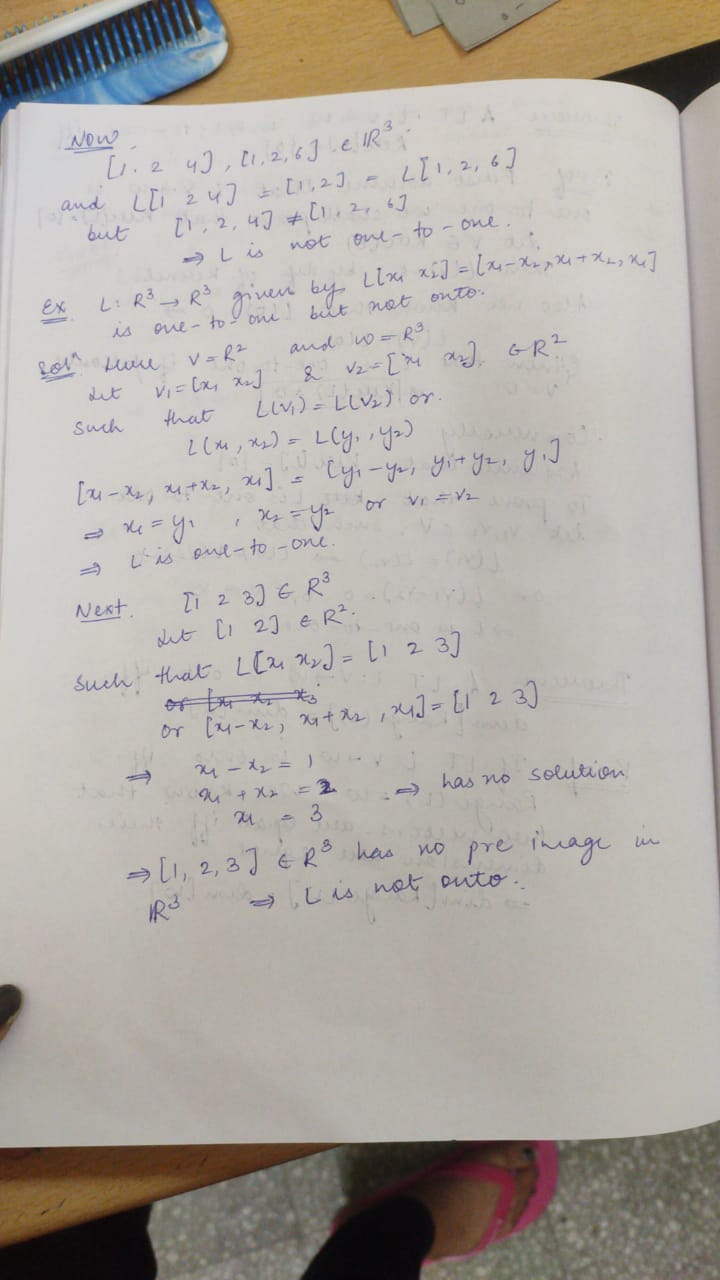 Now.
[1. 2 4], [1, 2, 6] ∈ ℝ³.
and L[1 2 4] = [1, 2] = L[1, 2, 6]
but [1, 2, 4] ≠ [1, 2, 6]
⇒ L is not one-to-one.
Ex L: R³ → R³ given by L[x₁ x₂] = [x₁-x₂, x₁+x₂, x₁]
is one-to-one but not onto.
Solⁿ. Here V = R² and W = R³
Let v₁ = [x₁ x₂] & v₂ = [x₁ x₂] ∈ R²
Such that L(v₁) = L(v₂) or.
L(x₁, x₂) = L(y₁, y₂)
[x₁-x₂, x₁+x₂, x₁] = [y₁-y₂, y₁+y₂, y₁]
⇒ x₁ = y₁ , x₂ = y₂ or v₁ = v₂
⇒ L is one-to-one.
Next. [1 2 3] ∈ R³
Let [1 2] ∈ R².
Such that L[x₁ x₂] = [1 2 3]
or [x₁ x₂ x₃
or [x₁-x₂, x₁+x₂, x₁] = [1 2 3]
⇒ x₁ - x₂ = 1
x₁ + x₂ = 2 ⇒ has no solution
x₁ = 3
⇒ [1, 2, 3] ∈ R³ has no pre image in
ℝ³ ⇒ L is not onto.